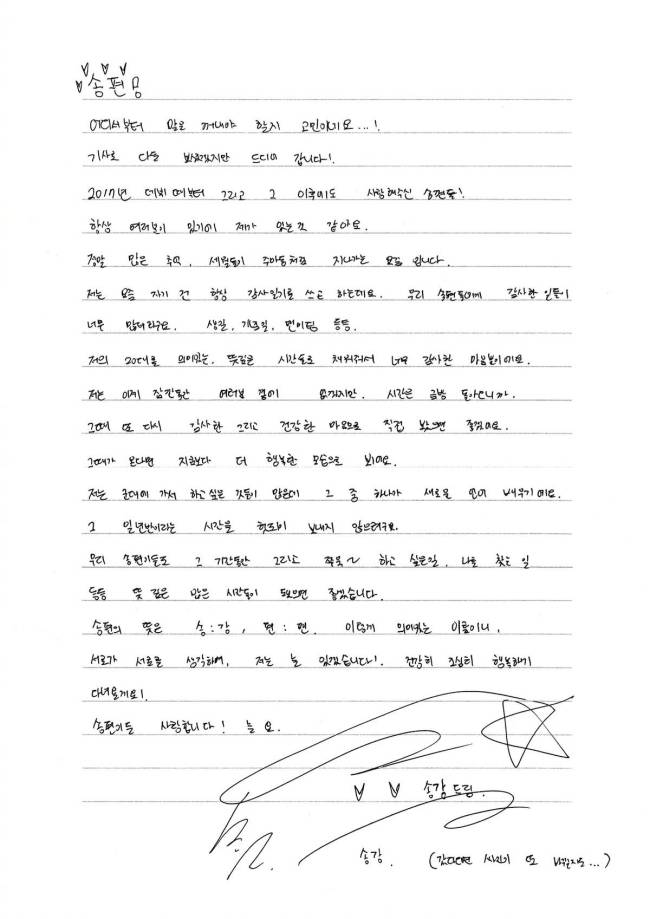 송편♡
어디서부터 말로 꺼내야 할지 고민이네요...!
기사로 다들 보셨겠지만 드디어 갑니다!
2017년 데뷔 때부터 그리고 그 이후에도 사랑해주신 송편들!
항상 여러분이 있기에 제가 있는것 같아요.
정말 많은 추억, 세월들이 주마등처럼 지나가는 요즘 입니다.
저는 요즘 자기 전 항상 감사일기를 쓰곤 하는데요. 우리 송편들에게 감사한 일들이
너무 많더라구요. 생일, 개츠길, 팬미팅 등등.
저의 20대를 의미있는, 뜻깊은 시간들로 채워줘서 너무 감사한 마음뿐이에요.
저는 이제 잠깐동안 여러분 곁에 없겠지만, 시간은 금방 돌아오니까.
그때 또 다시 감사한 그리고 건강한 마음으로 직접 봤으면 좋겠어요.
그때가 온다면 지금보다 더 행복한 모습으로 봐요.
저는 군대에 가서 하고 싶은 것들이 많은데 그 중 하나가 새로운 언어 배우기에요.
그 일년반이라는 시간을 헛되이 보내지 않으려구요.
우리 송편이들도 그 기간동안 그리고 쭈욱~ 하고 싶은일, 나를 찾는 일
등등 뜻 깊은 많은 시간들이 됐으면 좋겠습니다.
송편의 뜻은 송:강, 편:편. 이렇게 의미있는 이름이니,
서로가 서로를 생각하며, 저는 늘 있겠습니다! 건강히 조심히 행복하게
다녀올게요!
송편이들 사랑합니다! 늘 요.
송강 드림.
송강. (갔다오면 싸인이 또 바뀔지도...)